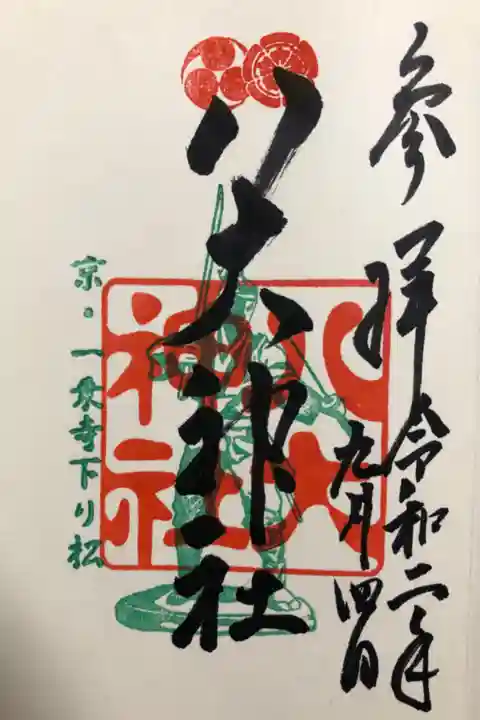 参拝
令和二年
九月四日
八大神社
八大
神社
京・一乗寺下り松